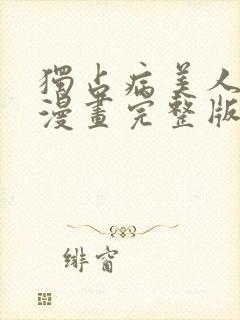 獨占病美人
漫畫完整版
緋窗